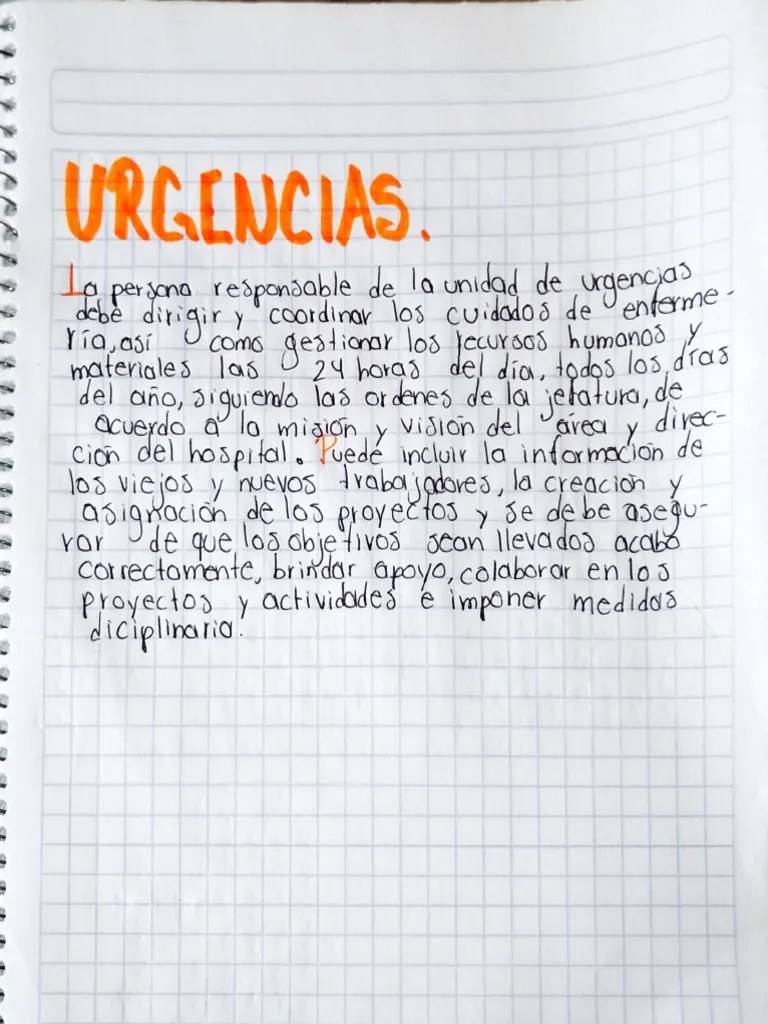 URGENCIAS.
La persona responsable de la unidad de urgencias
debe dirigir y coordinar los cuidados de enferme-
ría, así como gestionar los recursos humanos y
materiales las 24 horas del día, todos los días
del año, siguiendo las ordenes de la jefatura, de
acuerdo a la misión y visión del área y direc-
ción del hospital. Puede incluir la información de
los viejos y nuevos trabajadores, la creación y
asignación de los proyectos y se debe asegu-
rar de que los objetivos sean llevados acabo
correctamente, brindar apoyo, colaborar en los
proyectos y actividades e imponer medidas
diciplinaria.